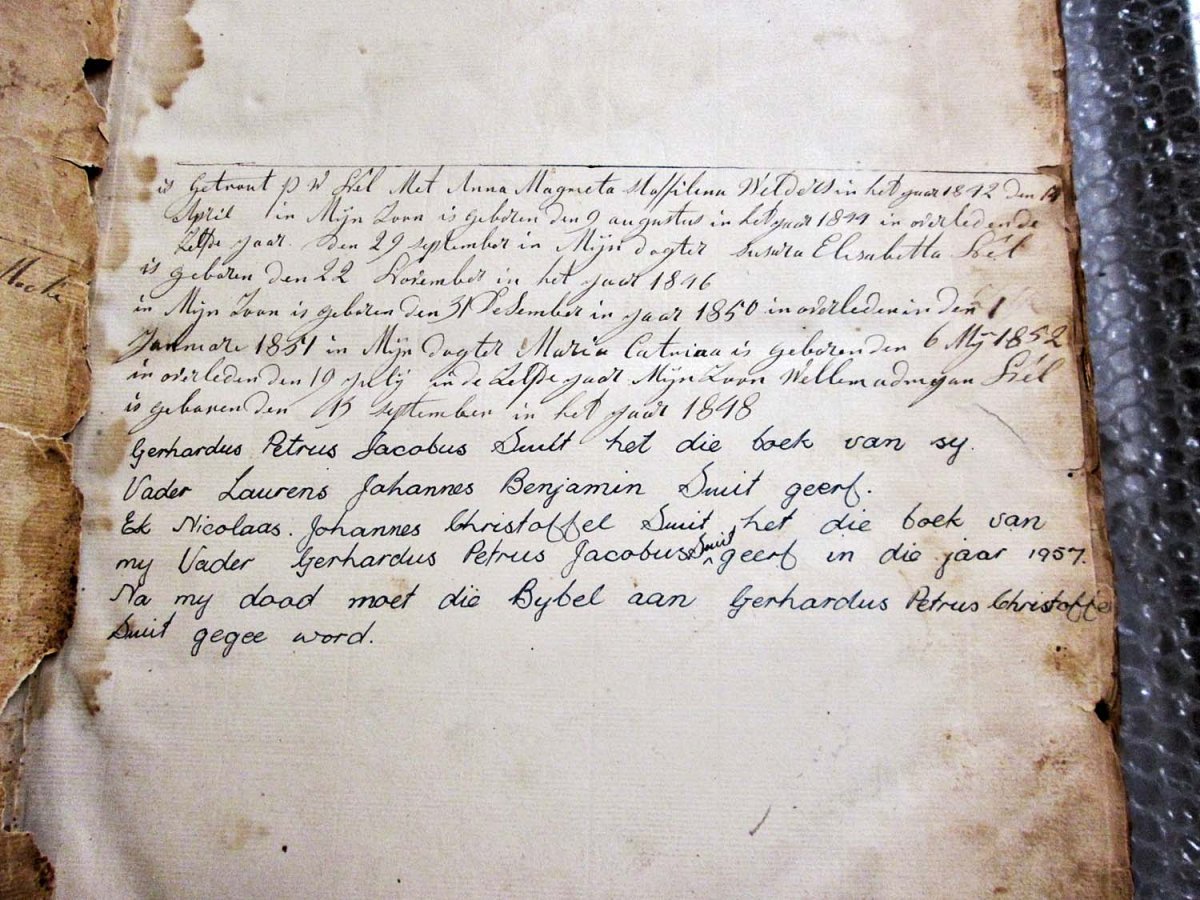 is Getrout P W Stel Met Anna Magrieta Wilders in het jaar 1842 den 14
April in Mijn Zoon is geboren den 9 augustus in het jaar 1844 in overleden de
Zelfde jaar. den 29 september in Mijn dogter Susara Elisabetta Stel
is geboren den 22 November in het jaar 1846
in Mijn Zoon is geboren den 31 DeSember in jaar 1850 in overleden in den 1
Januwarie 1851 in Mijn dogter Maria Catriaa is geboren den 6 Mij 1852
in overleden den 19 july in de Zelfde jaar Mijn Zoon Stel
is geboren den 15 september in het jaar 1848
Gerhardus Petrus Jacobus Smit het die boek van sy.
Vader Laurens Johannes Benjamin Smit geerf.
Ek Nicolaas. Johannes Christoffel Smit het die boek van
my Vader Gerhardus Petrus Jacobus Smit geerf in die jaar 1957.
Na my dood moet die Bybel aan Gerhardus Petrus Christoffe
Smit gegee word.